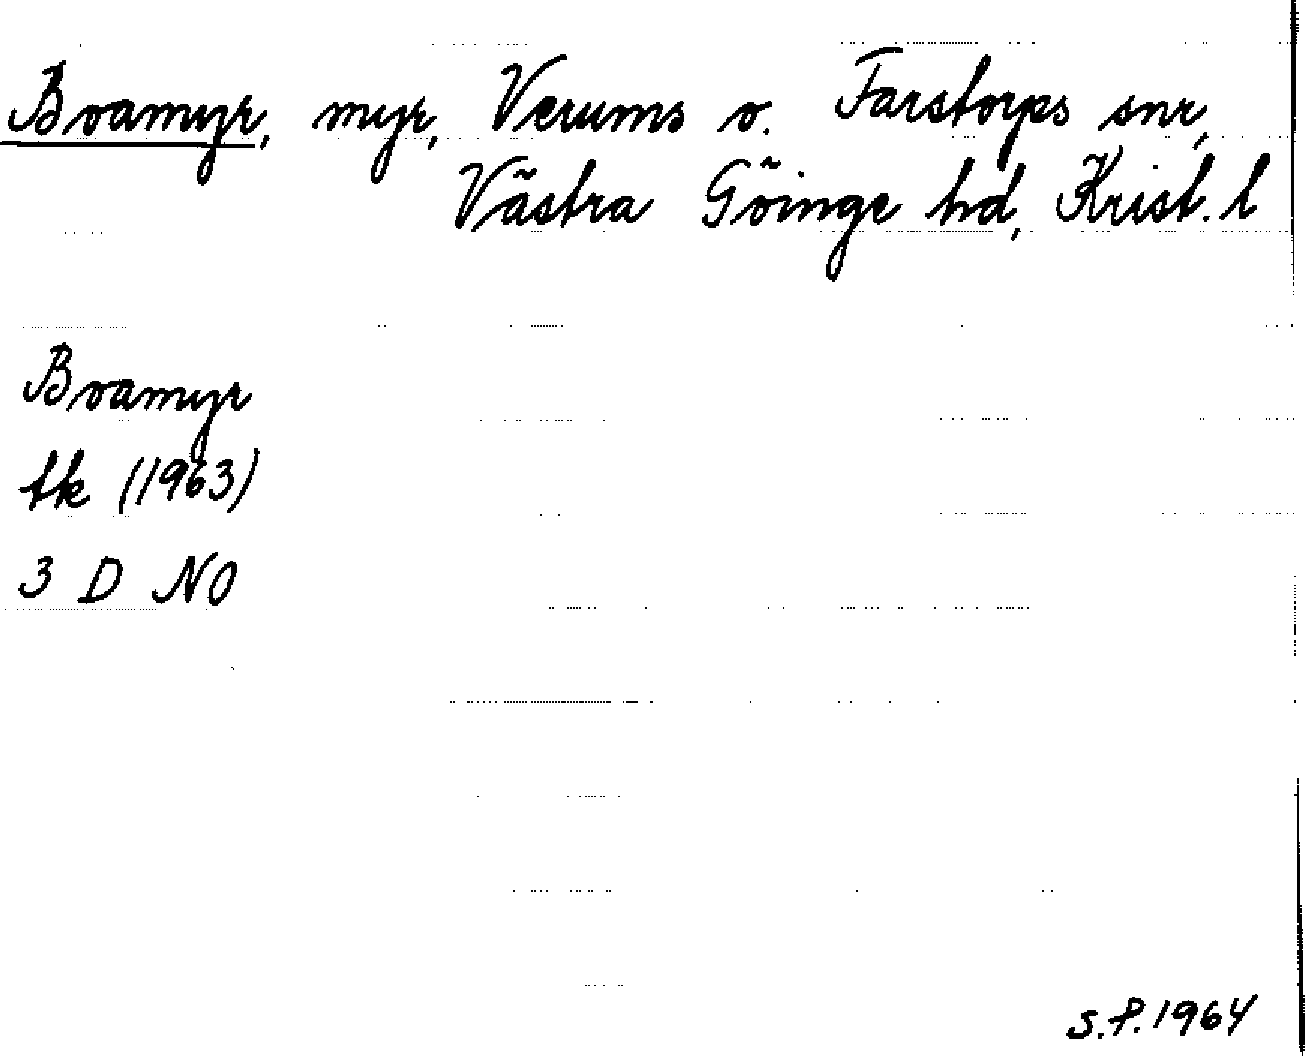 Boamyr, myr, Verums o. Farstorps snr,
Västra Göinge hd, Krist. l
Boamyr
tk (1963)
3 D NO
S.P. 1964